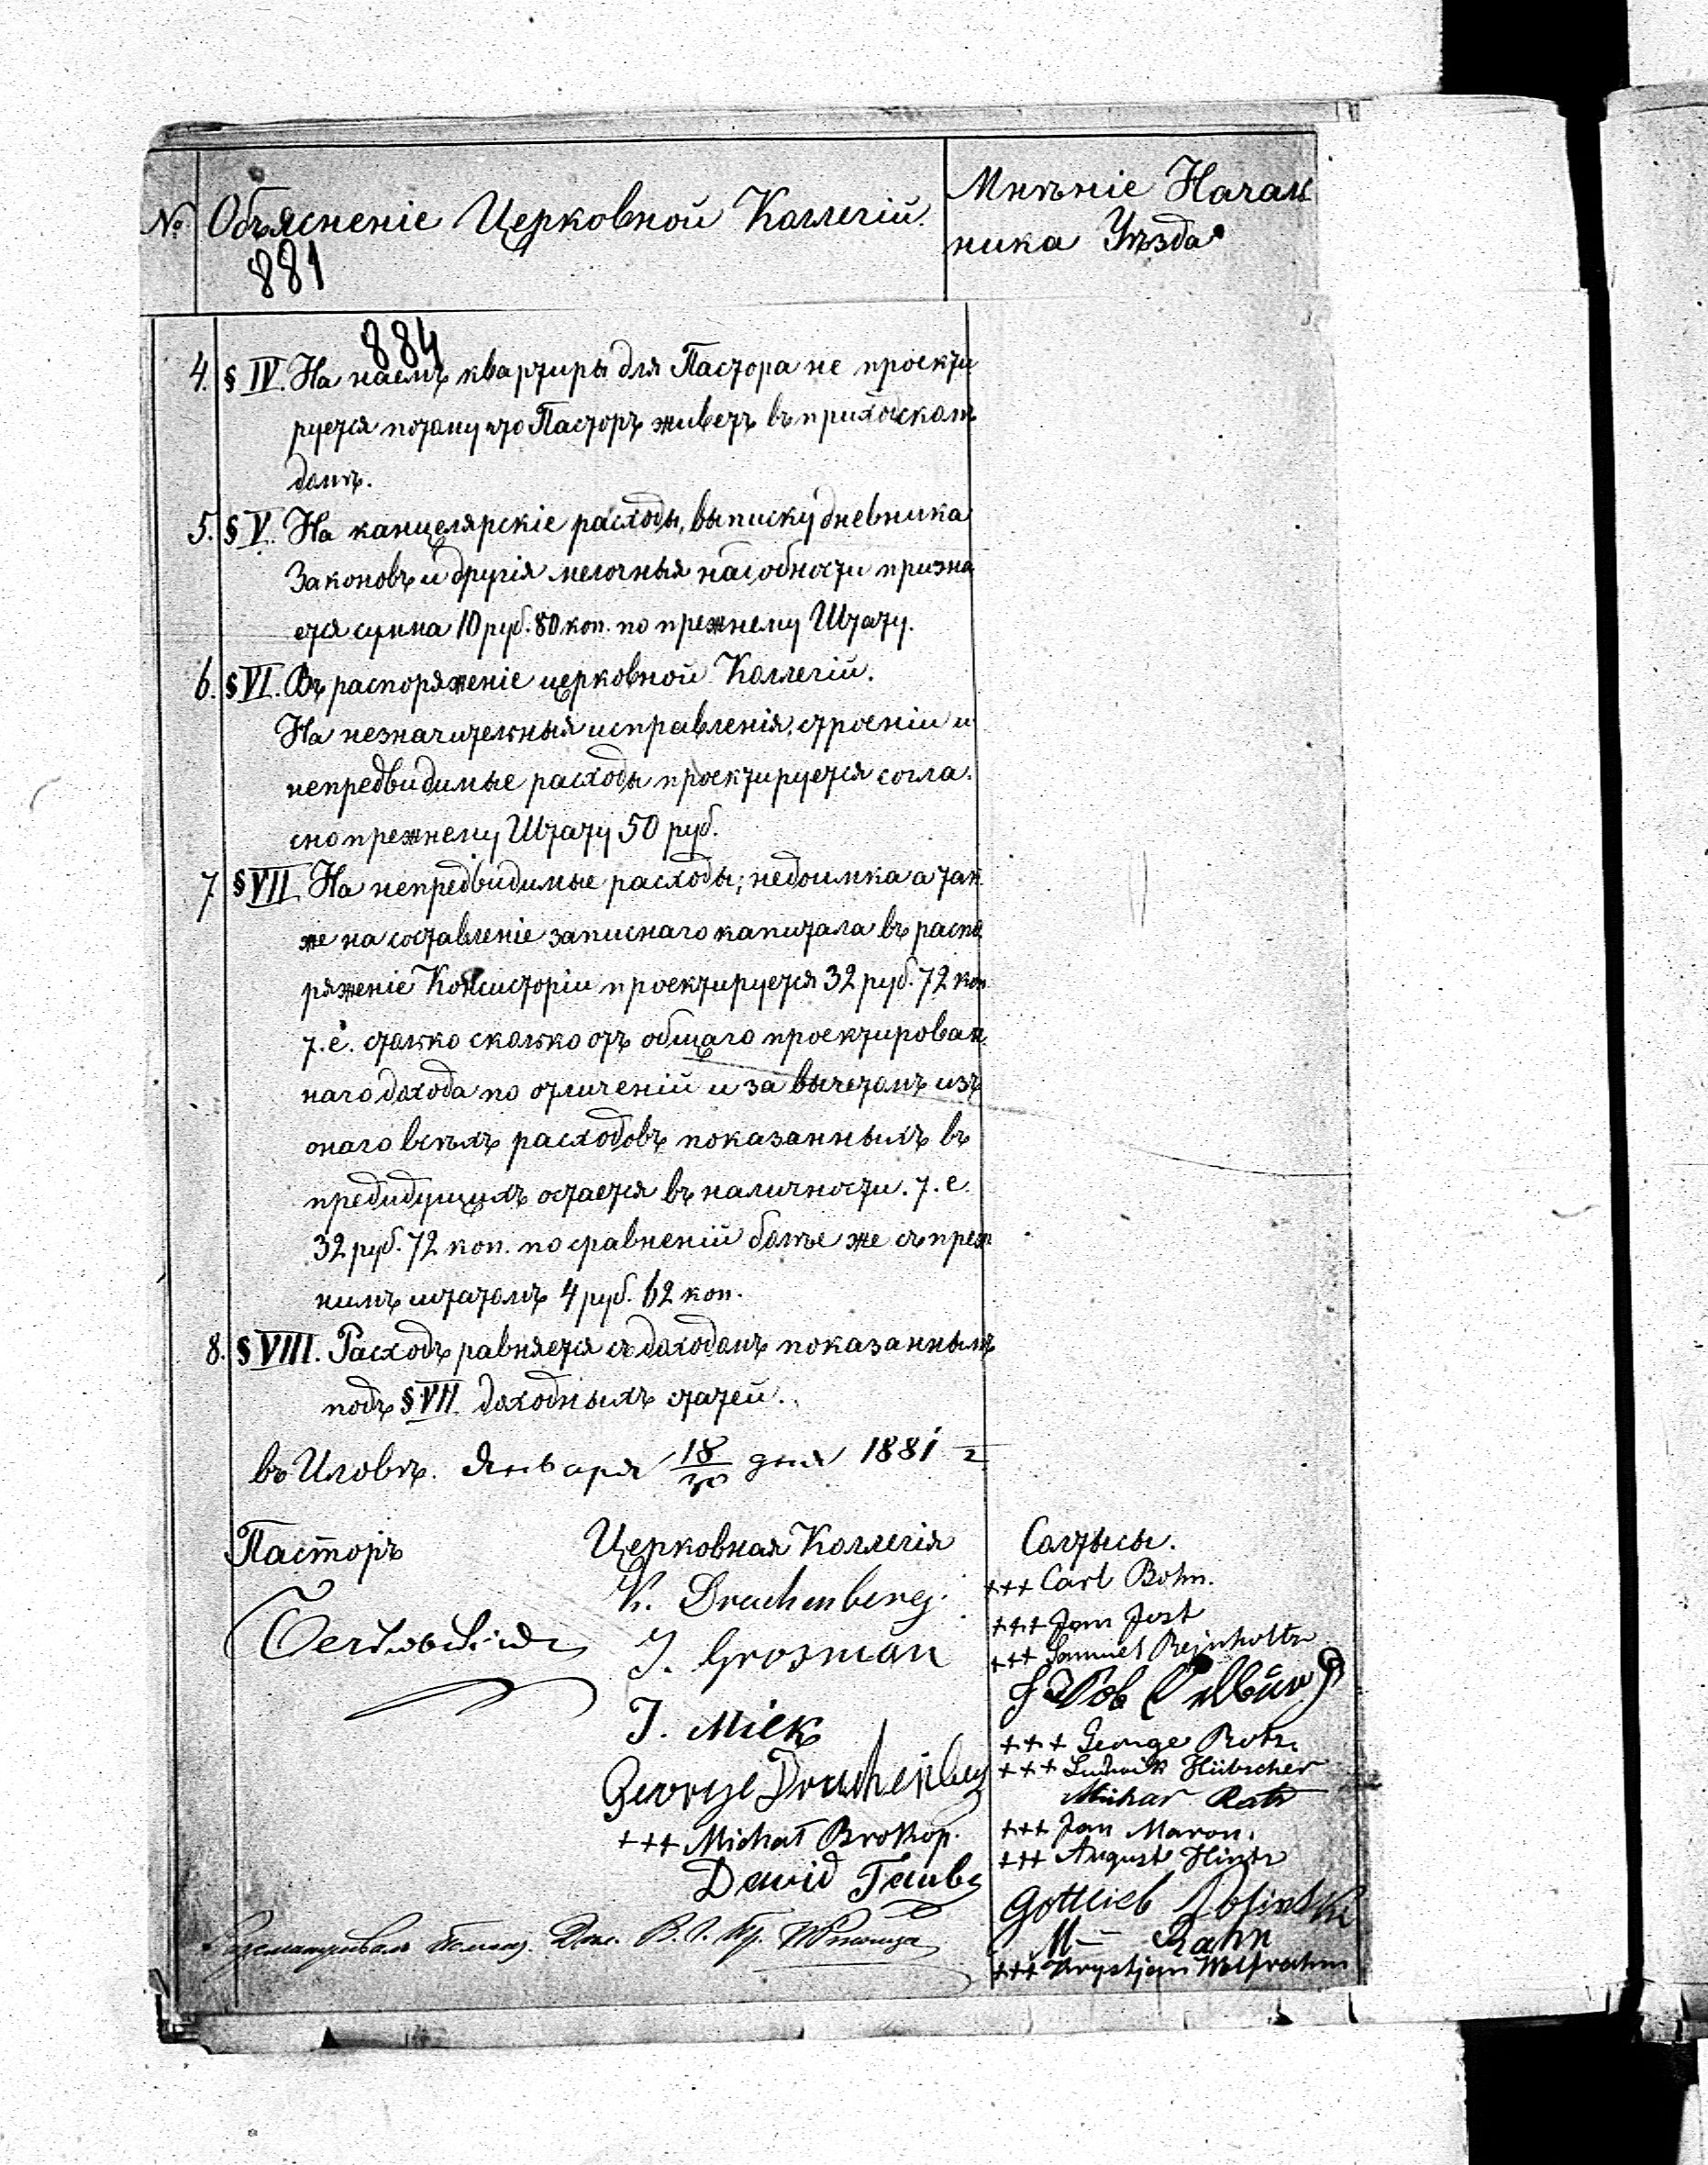 № Объясненіе Церковной Коллегій.
881
Мнѣніе Началь
ника Уѣзда
884
4. § IV. На наемъ квартиры для Пастора не проекти
руется потому что Пасторъ живетъ въ приходскомъ
домѣ.
5. § V. На канцелярскіе расходы, выписку дневника
Законовъ и другія мелочныя надобности призна
ется сумма 10 руб. 80 коп. по прежнему Штату.
6. § VI. Въ распоряженіе церковной Коллегій.
На незначительныя исправленія строеніи и
непредвидимые расходы проектируется согла.
сно прежнему Штату 50 руб.
7 § VII. На непредвидимые расходы; недоимка а так
же на составленіе записнаго капитала въ распо
ряженіе Консисторіи проектируется 32 руб. 72 коп
т. е. столько сколько отъ общаго проектирован.
наго дохода по отличеній и за вычетомъ изъ
онаго всѣхъ расходовъ показанныхъ въ
предидущихъ остается въ наличности. т. е.
32 руб. 72 коп. по сравненій болѣе же съ преж
нимъ штатомъ 4 руб. 62 коп.
8. § VIII. Расходъ равняется съ доходомъ показаннымъ
подъ § VII. доходныхъ статей.
въ Иловѣ. Января 18/30 дня 1881 г.
Пасторъ
Церковная Коллегія
K. Drachenberg.
J. Grosman
J. Miek
George Drachenberg
+++ Michał Brokop.
Dawid Taube
Солтысы.
+++ Carl Bohn.
+++ Jan Just
+++ Samuel Rejnholtz
+++ George Rotz.
+++ Ludwik Hübscher
Ratz
+++ Jan Maron.
+++ August Hintz
Gottlieb
M Rahn
+++ Krystjan Wolfrahm